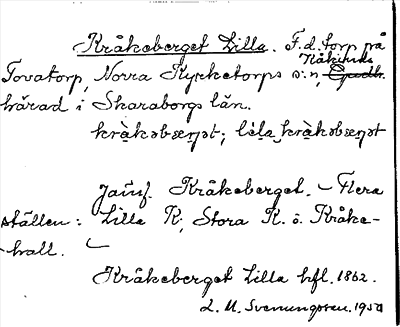 Kråkeberget Lilla. F.d. torp på
Tovatorp, Norra Kyrketorps s:n, Kåkinds
härad i Skaraborgs län.
kràkəbæɳət; lìla kràkəbæɳət
Jämf. Kråkeberget. – Flera
ställen: Lilla K., Stora K. o. Kråke-
hall. –
Kråkeberget Lilla hfl. 1862.
L. M. Svenungsson. 1950